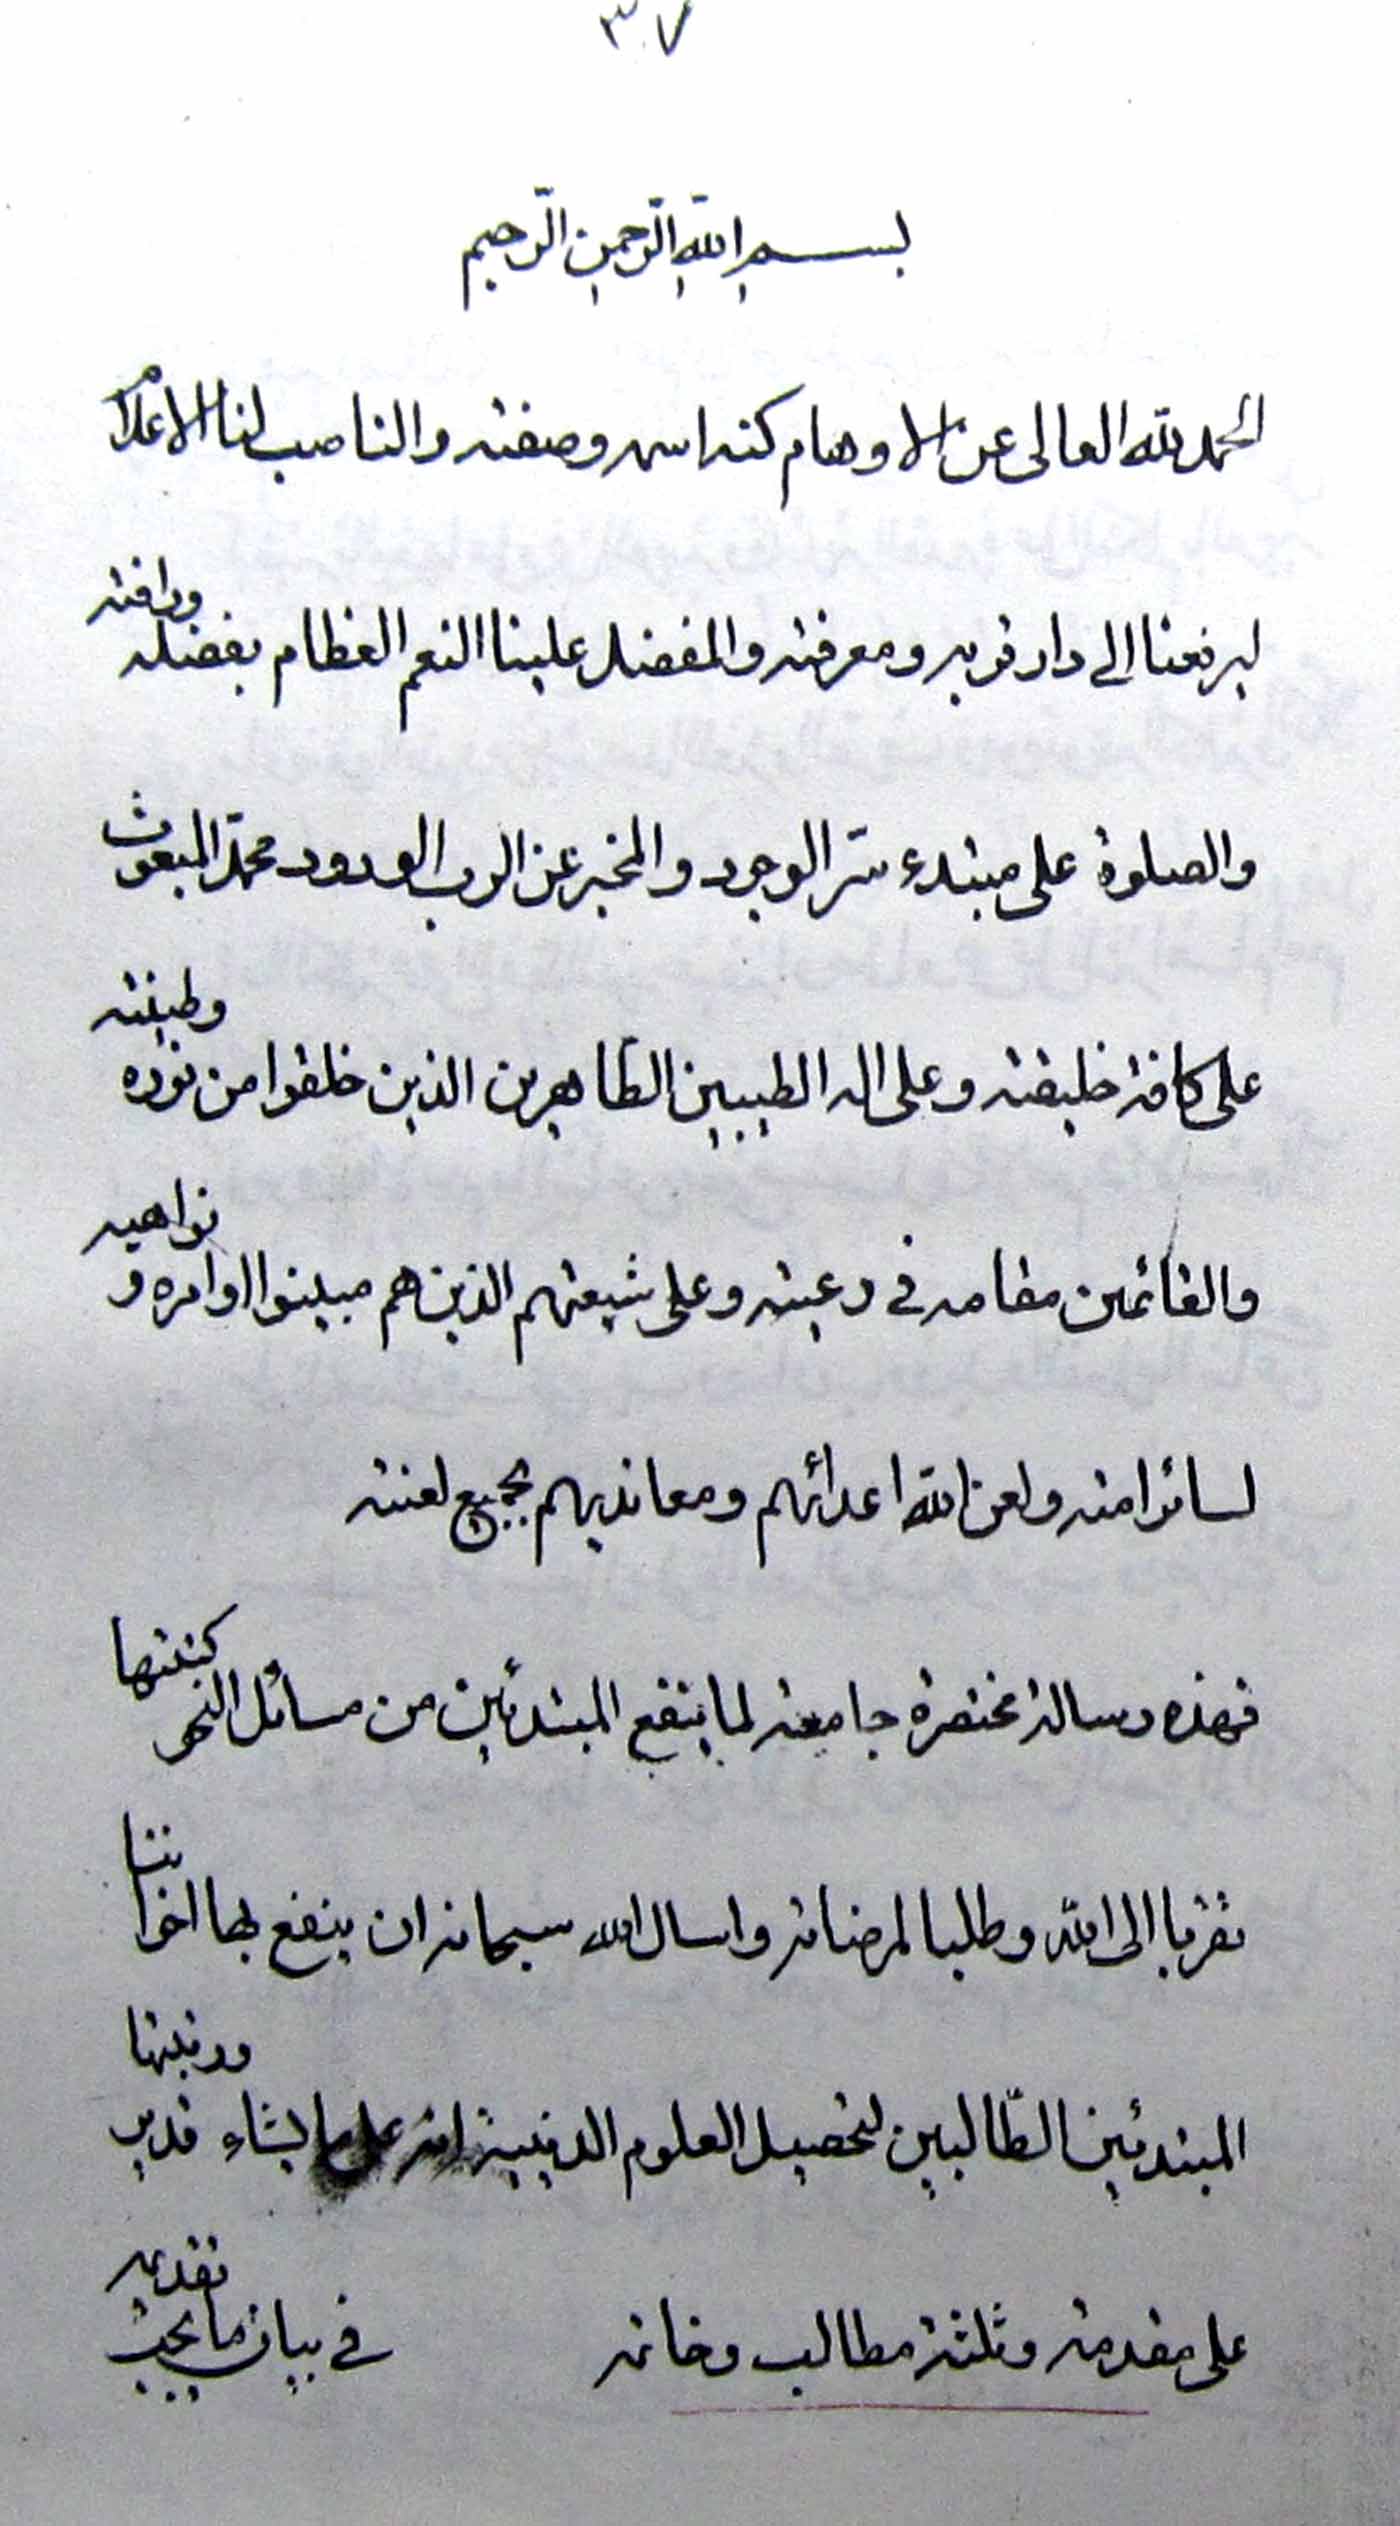 ٣٠٧
بسم الله الرّحمن الرّحيم
الحمد لله العالى عن الاوهام كنه اسمه وصفته والناصب لنا الاعلام
ليرفعنا الى دار قربه ومعرفته والمفضل علينا النعم العظام بفضله ورافته
والصلوة على مبتدء سرّ الوجود والمخبر عن الرب الودود محمّد المبعوث
على كافة خليقته وعلى اله الطيبين الطّاهرين الذين خلقوا من نوره وطينته
والقائمين مقامه فى رعيته وعلى شيعتهم الذين هم مبينوا اوامره و نواهيه
لسائر امته ولعن الله اعدائهم ومعانديهم بجميع لعنته
فهذه رسالة مختصرة جامعة لما ينفع المبتدئين من مسائل النحو كتبتها
تقربا الى الله وطلبا لمرضاته واسال الله سبحانه ان ينفع بها اخواننا
المبتدئين الطّالبين لتحصيل العلوم الدينية انه على ما يشاء قدير ورتبتها
على مقدمة وثلثة مطالب وخاتمه فى بيان ما يجب تقديمه